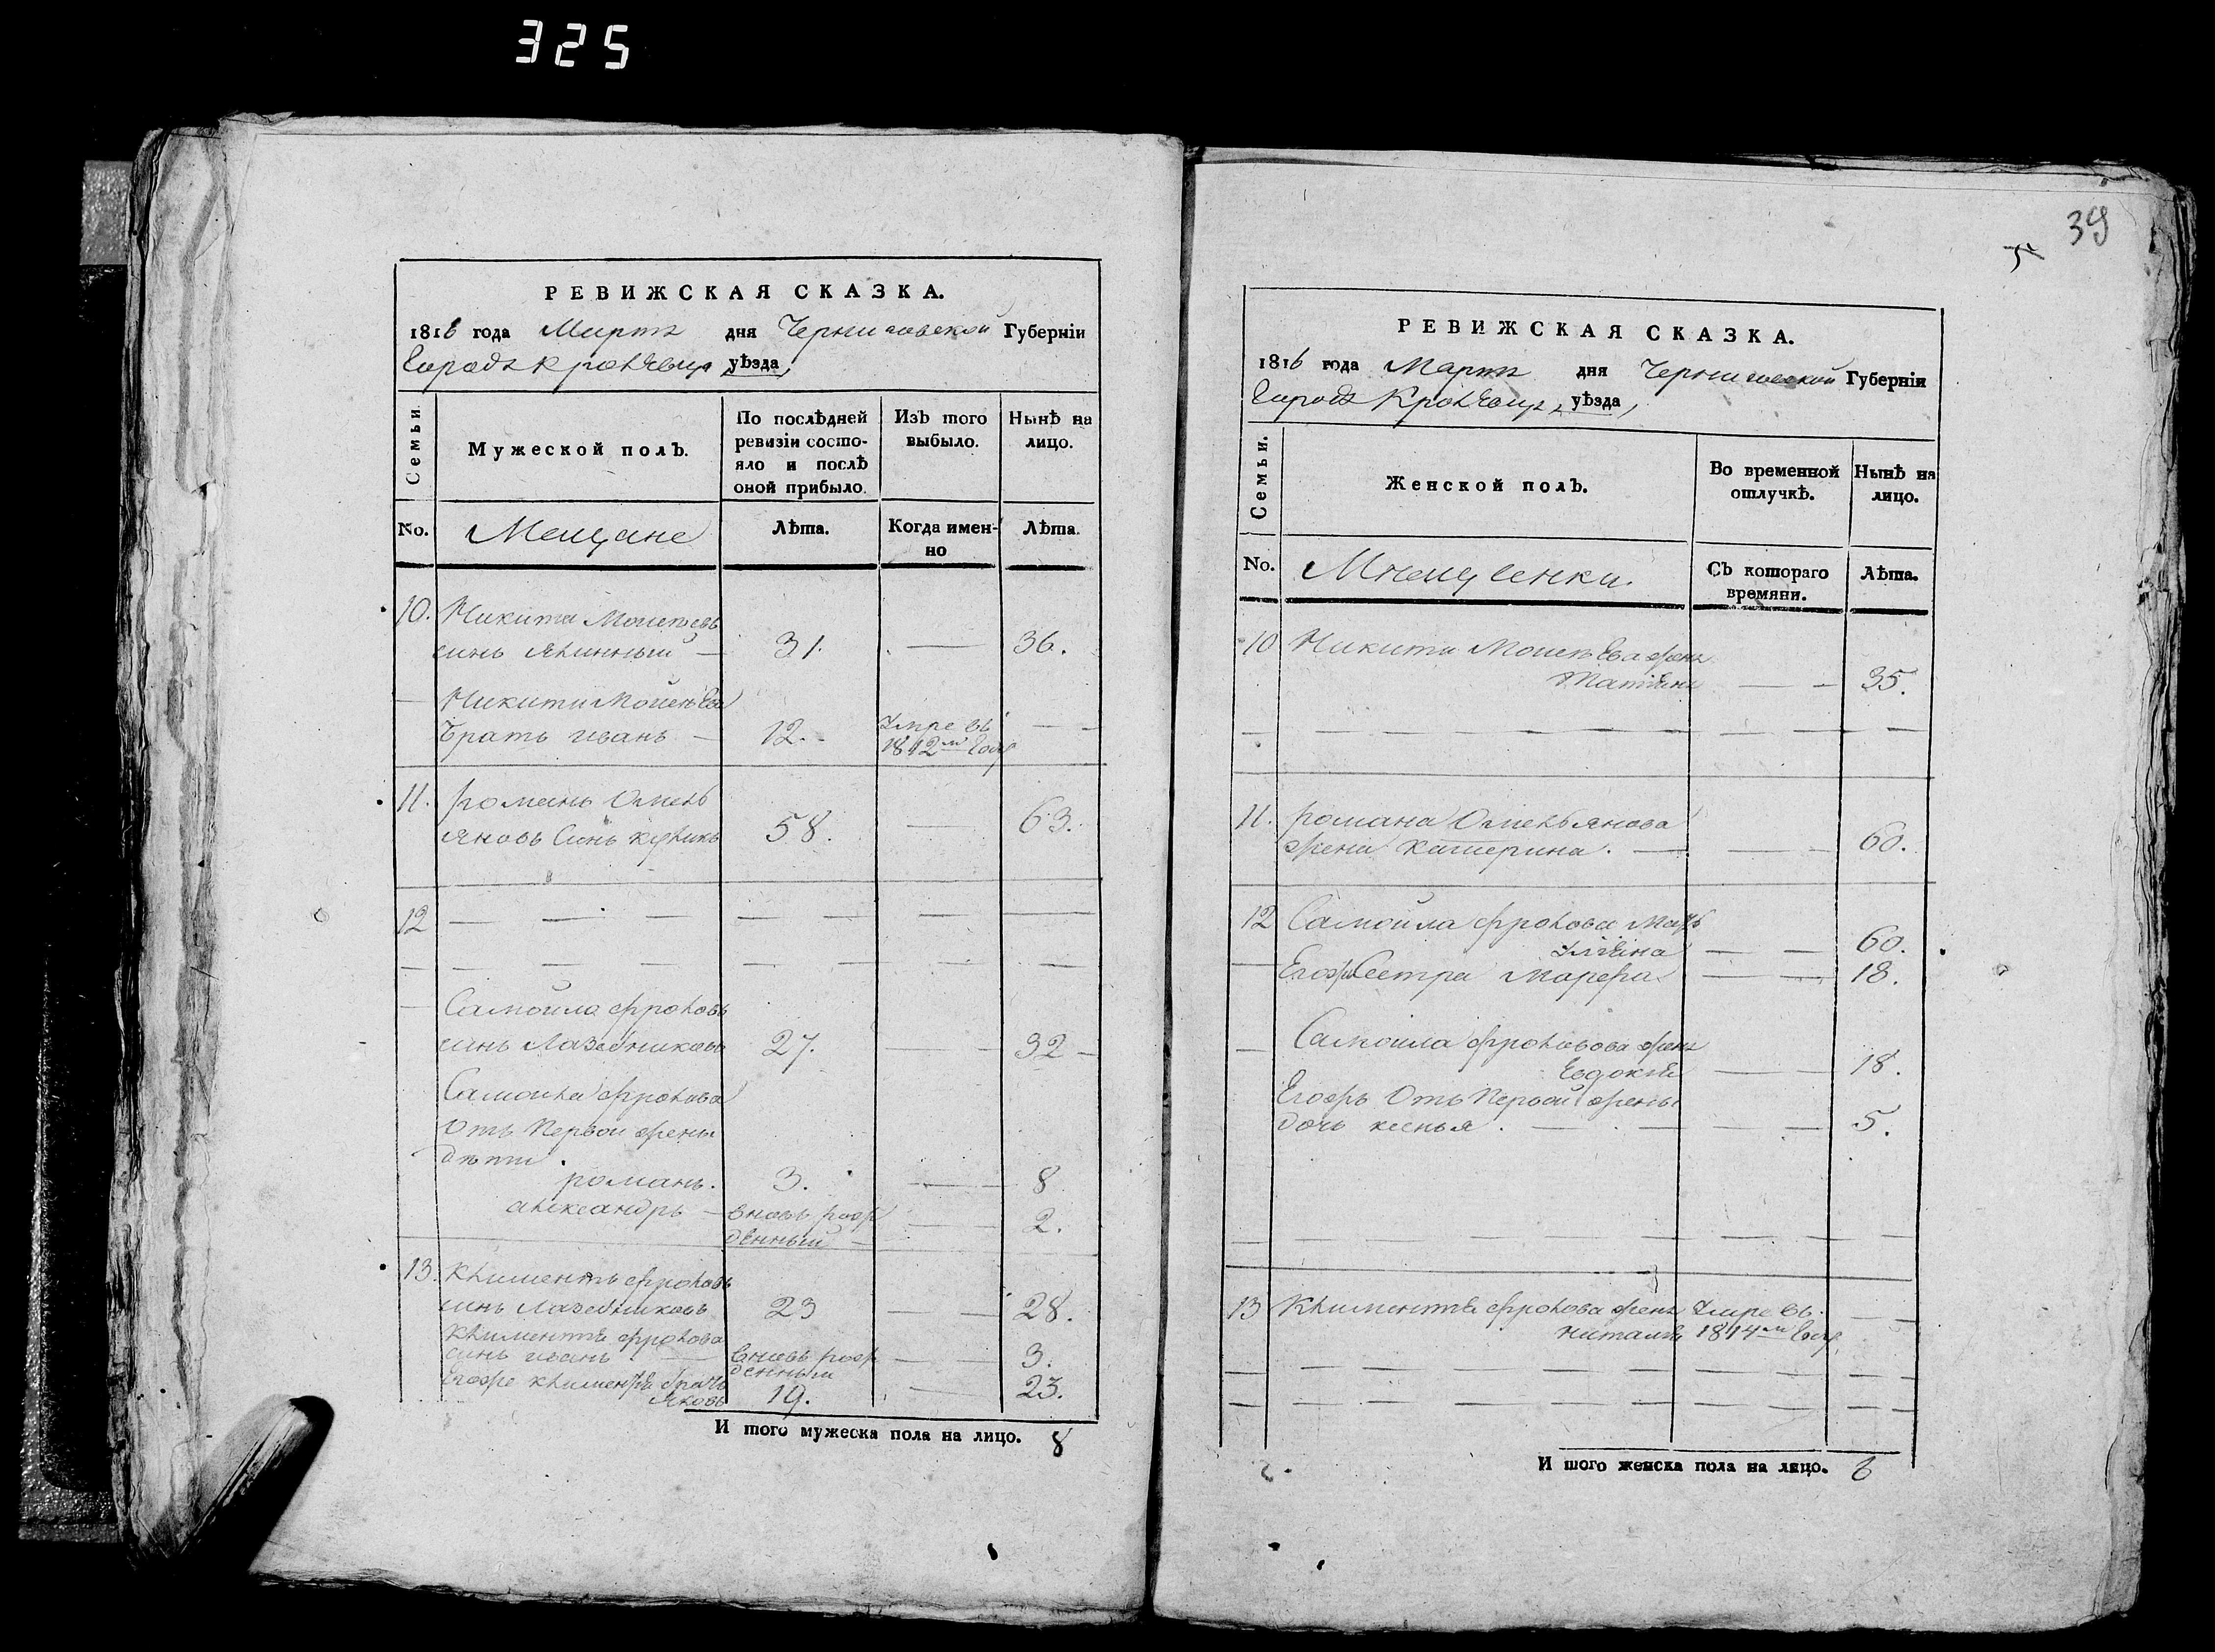 325
РЕВИЖСКАЯ СКАЗКА.
1816 года Мартъ дня Черниговской Губернїи
Городъ Кролѣвца, уѣзда,
Семьи.
Мужеской полЪ.
По послѣдней
ревизїи состо-
яло и послѣ
оной прибыло.
ИзЪ того
выбыло.
Нынѣ на
лицо.
No.
Мещане
Лѣта.
Когда имен-
но
Лѣта.
10. Никита Моисѣевъ
синъ 31. — 36.
— Никити Моисѣева
братъ иванъ — 12. - Умре въ
1812м году — -
11. романъ Омелъ
яновъ Синъ 58. — 63.
12 — — — — — — —
— — — — — — —
— Самойла фроловъ
синъ Лазебниковъ 27. — 32 -
Самойла фролова
Отъ Первои жены
дѣти.
романъ. 3. — 8
александръ — вновь рож
денный — 2.
13. Климентъ фроловъ
синъ Лазебниковъ 23 — 28.
Климентѣ фролова
синъ иванъ. — вновь рож
денным — 3.
егоже климентѣ братъ
яковъ 19. — 23.
И того мужеска пола на лицо. 8
39
5
РЕВИЖСКАЯ СКАЗКА.
1816 года Мартъ дня Черниговской Губернїи
Городъ Кролѣвца, уѣзда,
Семьи.
Женской полЪ.
Во временной
отлучкѣ.
НынѣЪ на
лицо.
No.
СЪ котораго
времяни.
Лѣта.
10 Никити Моисѣева жена
Татїяна — - 35.
— — — — — — —
11. романа Омельянова
жена Катерина. — — - 60.
12 Самойла фролова мать
Улїяна — — 60.
— Егожъ Сестра Марфа — — 18.
— Самоила фролова жена
Евдокїя — — 18.
Егожъ Отъ Первой жены
дочь ксенья. — — — — 5.
— — — — — — —
13 Климентѣ фролова жена Умре въ
наталїя 1814м году — -
— — — — — — —
— — — — — — —
И того женска пола на лицо. 6